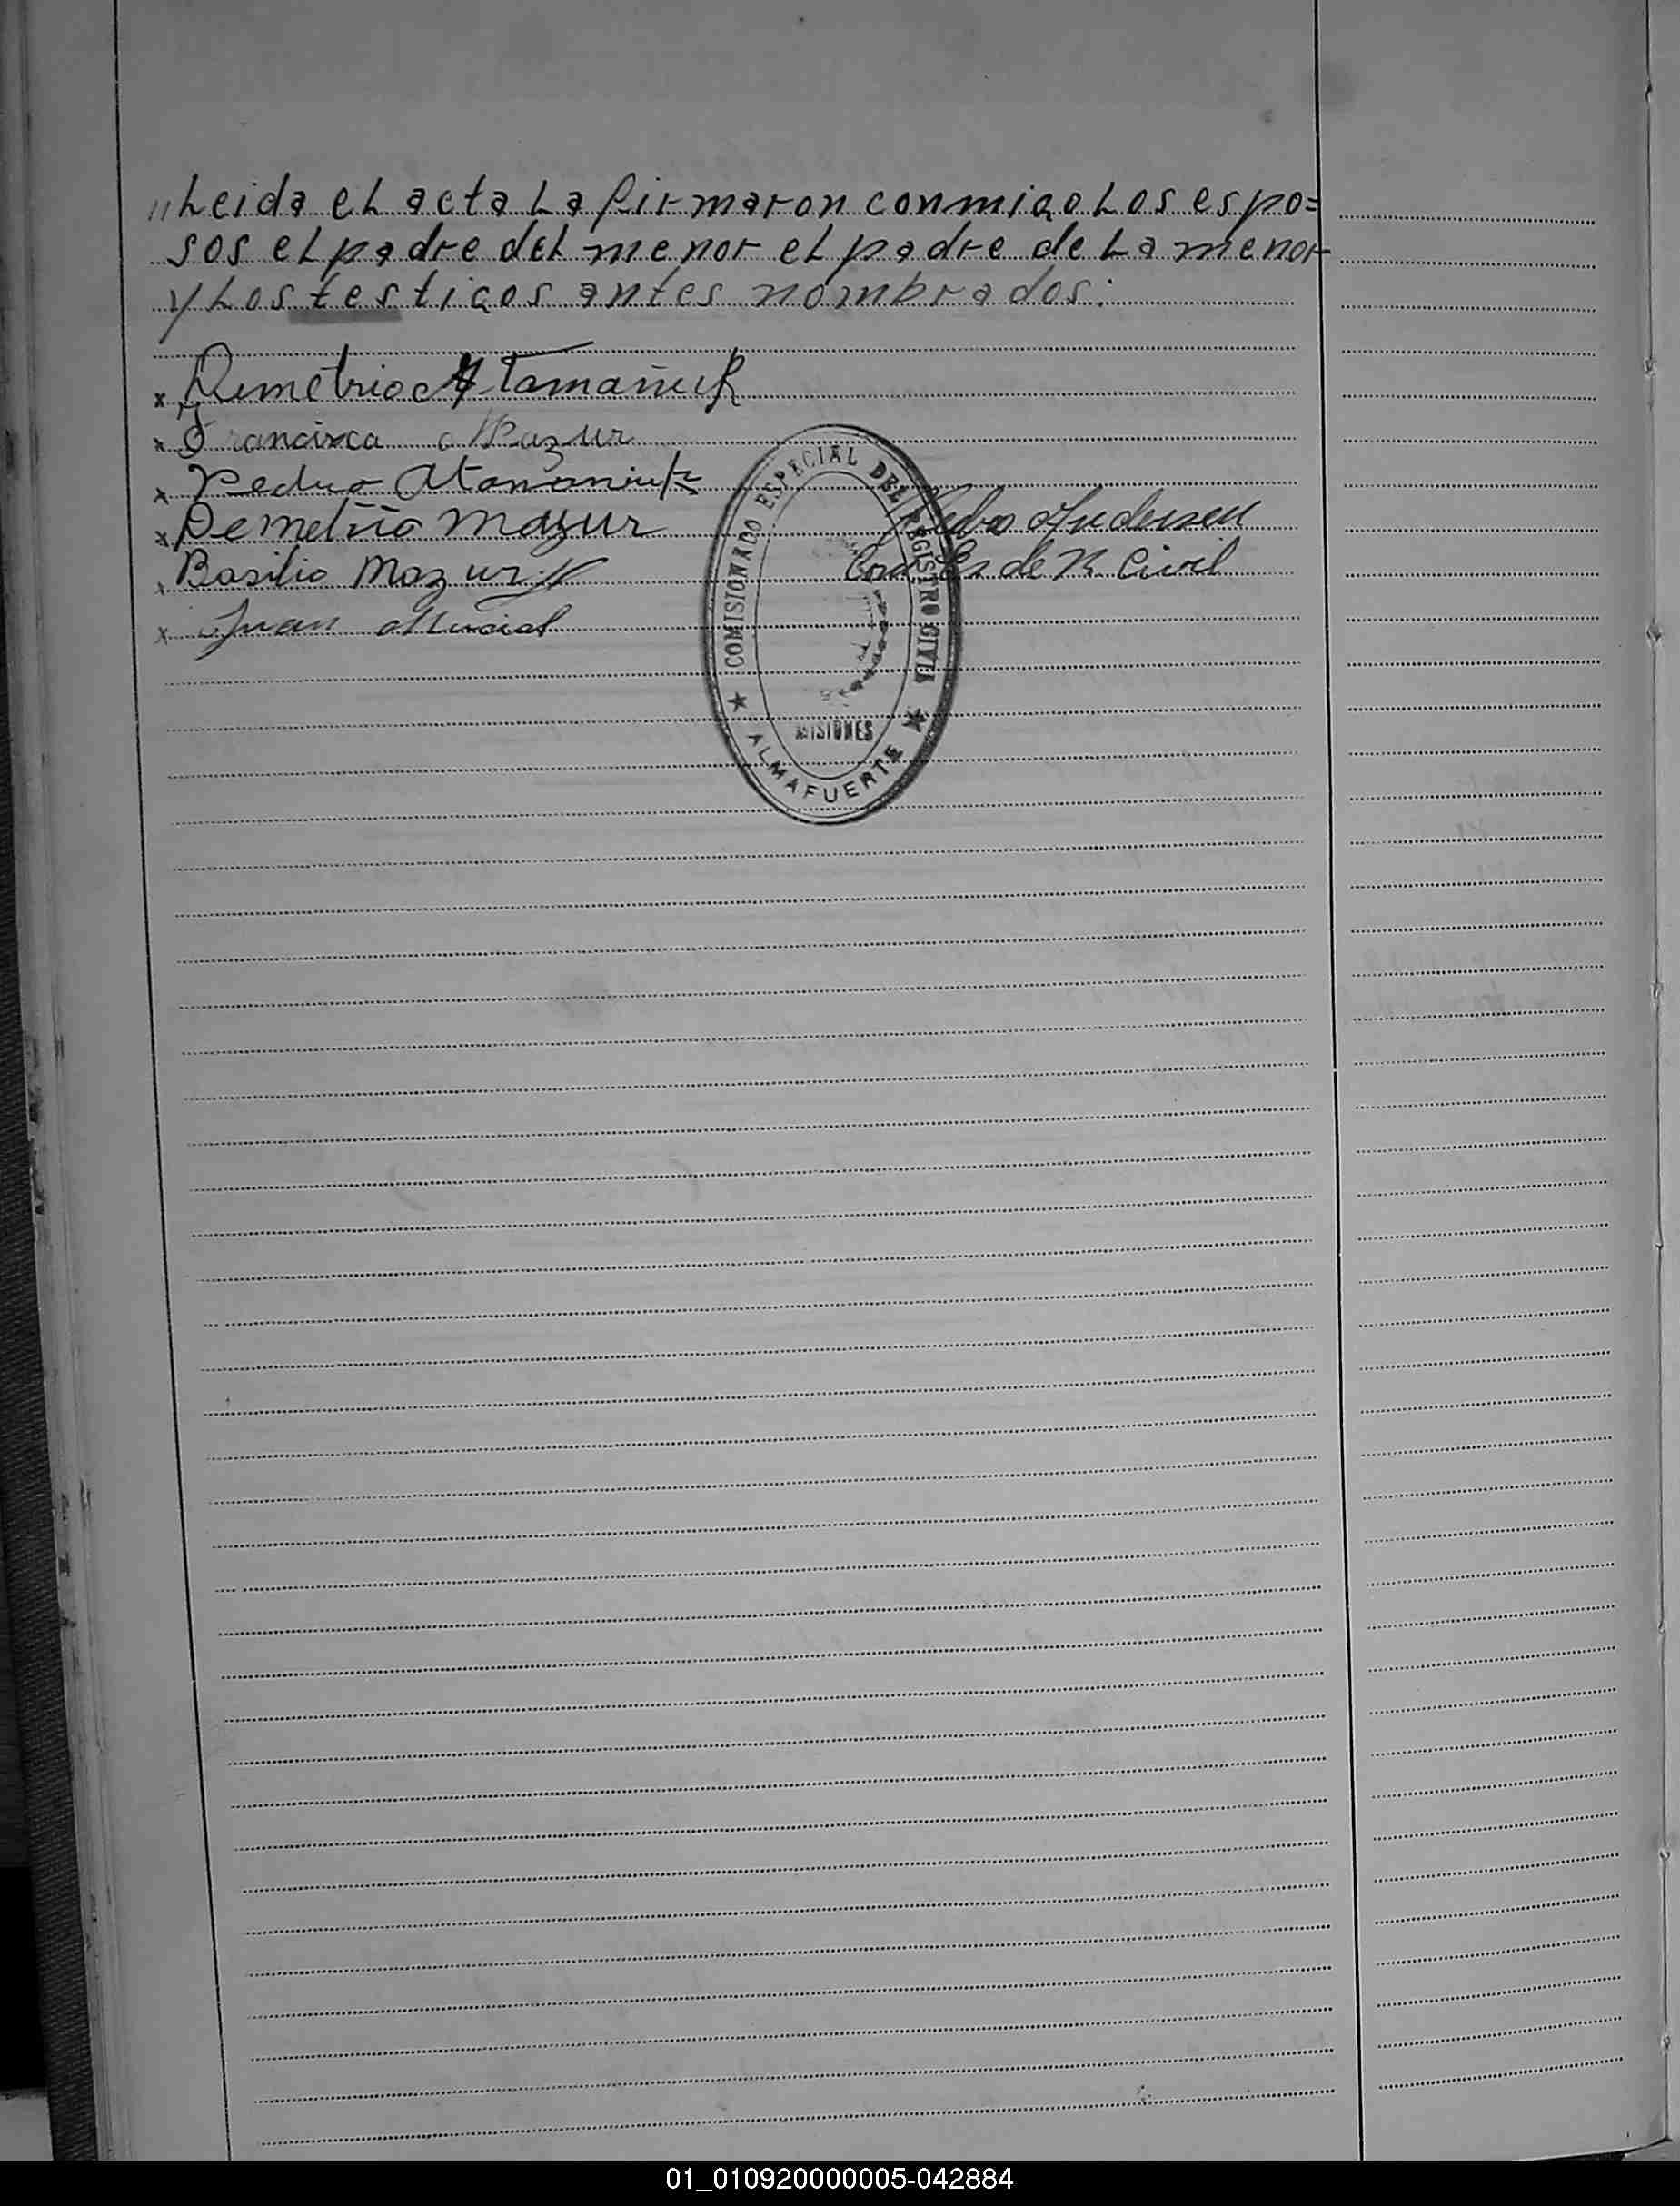 "Leida el acta la firmaron conmigo los espo=
sos el padre del menor el padre de la menor
y los testigos antes nombrados:
x Demetrio Atamañuk
x Francisca Mazur
x Pedro Atamaniuk
x Demetrio Mazur
Pedro Andersen
Basilio Mazur
de R. Civil
x Juan
COMISIONADO ESPECIAL DEL REGISTRO CIVIL
MISIONES
★ ALMAFUERTE ★
01_010920000005-042884